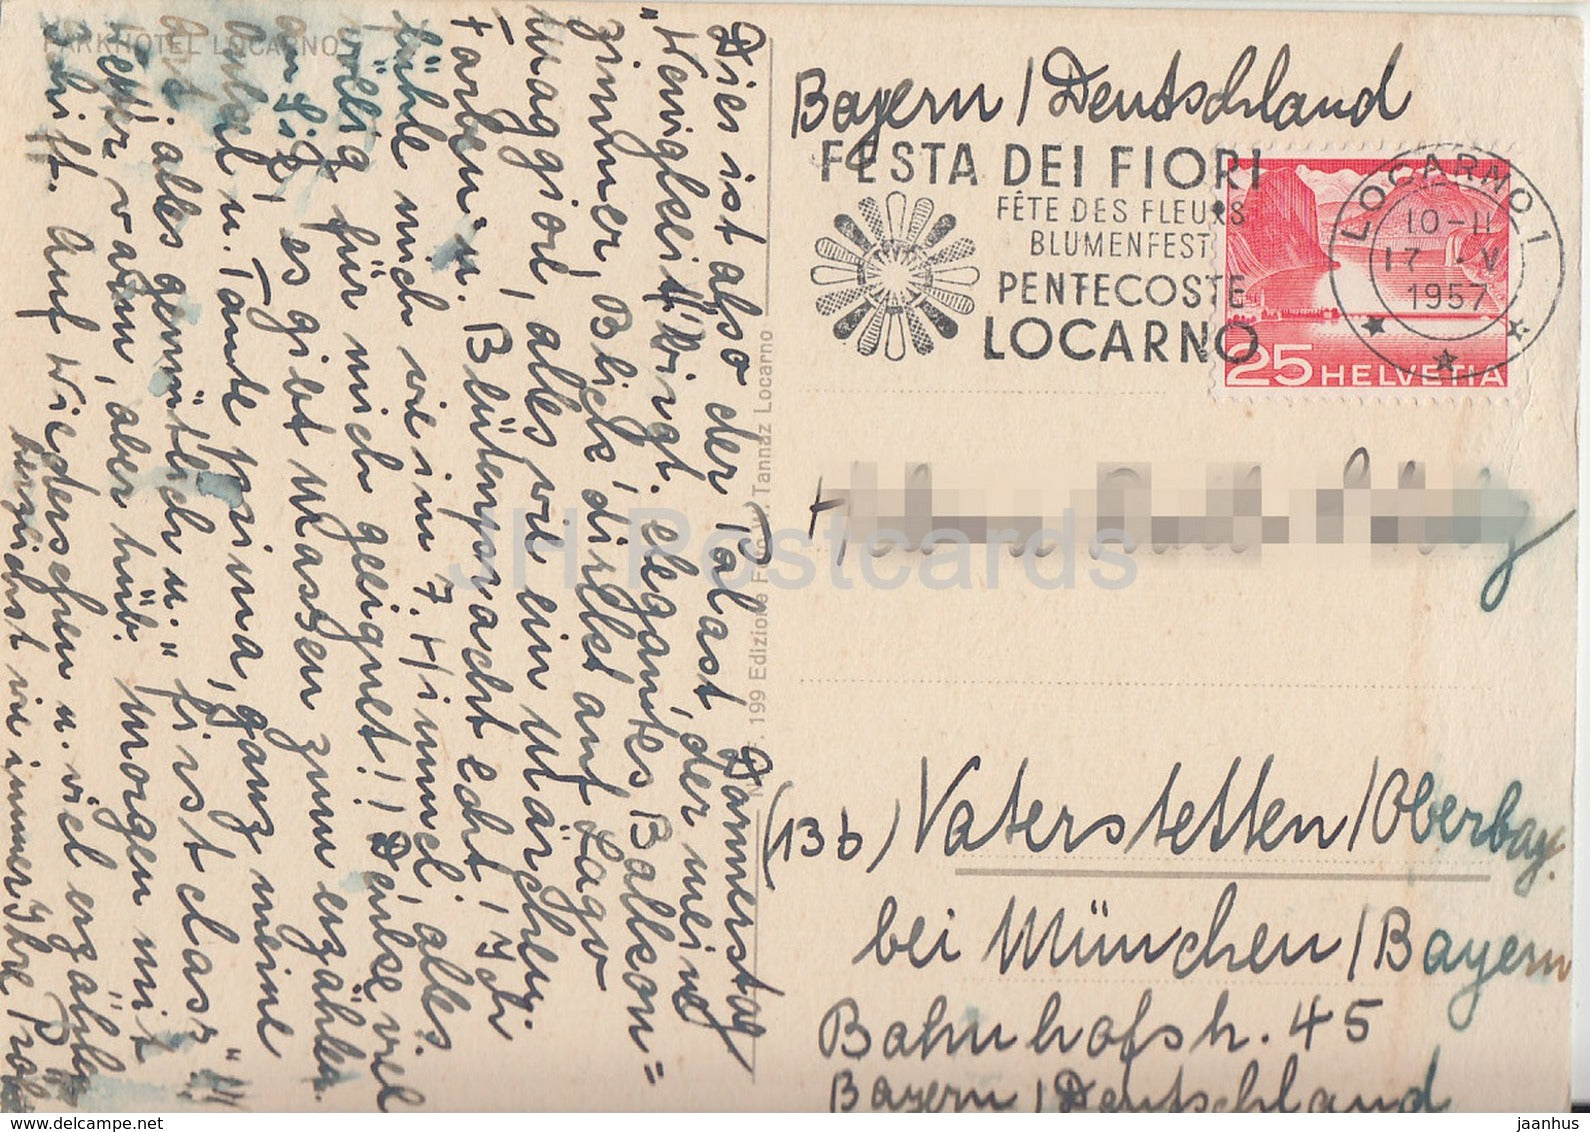 PARKHOTEL LOCARNO
Donnerstag
Dies ist also der Palast, der meine
"Wenigkeit" birgt. elegantes Balkon=
zimmer, Blick direkt auf Lago
Maggiore, alles wie ein Märchen.
Farben- u. Blütenpracht echt! Ich
fühle mich wie im 7. Himmel, alles
völlig für mich geeignet!! Denke viel
an Sie, es gibt Massen zum erzählen.
u. Tante prima, ganz meine
alles gemütlich u. "first class"!!
Wetter warm, aber trüb. Morgen mit
Schiff. Auf Wiedersehen u. viel erzählen
herzlichst wie immer Ihre
Nr. 199 Edizione Foto V. Tannaz Locarno
Bayern / Deutschland
FESTA DEI FIORI
FÊTE DES FLEURS
BLUMENFEST
PENTECOSTE
LOCARNO
LOCARNO 1
10-11
17 -V
1957
25 HELVETIA
(13b) Vaterstetten / Oberbay.
bei München / Bayern
Bahnhofstr. 45
Bayern / Deutschland
JH Postcards
delcampe.net
jaanhus